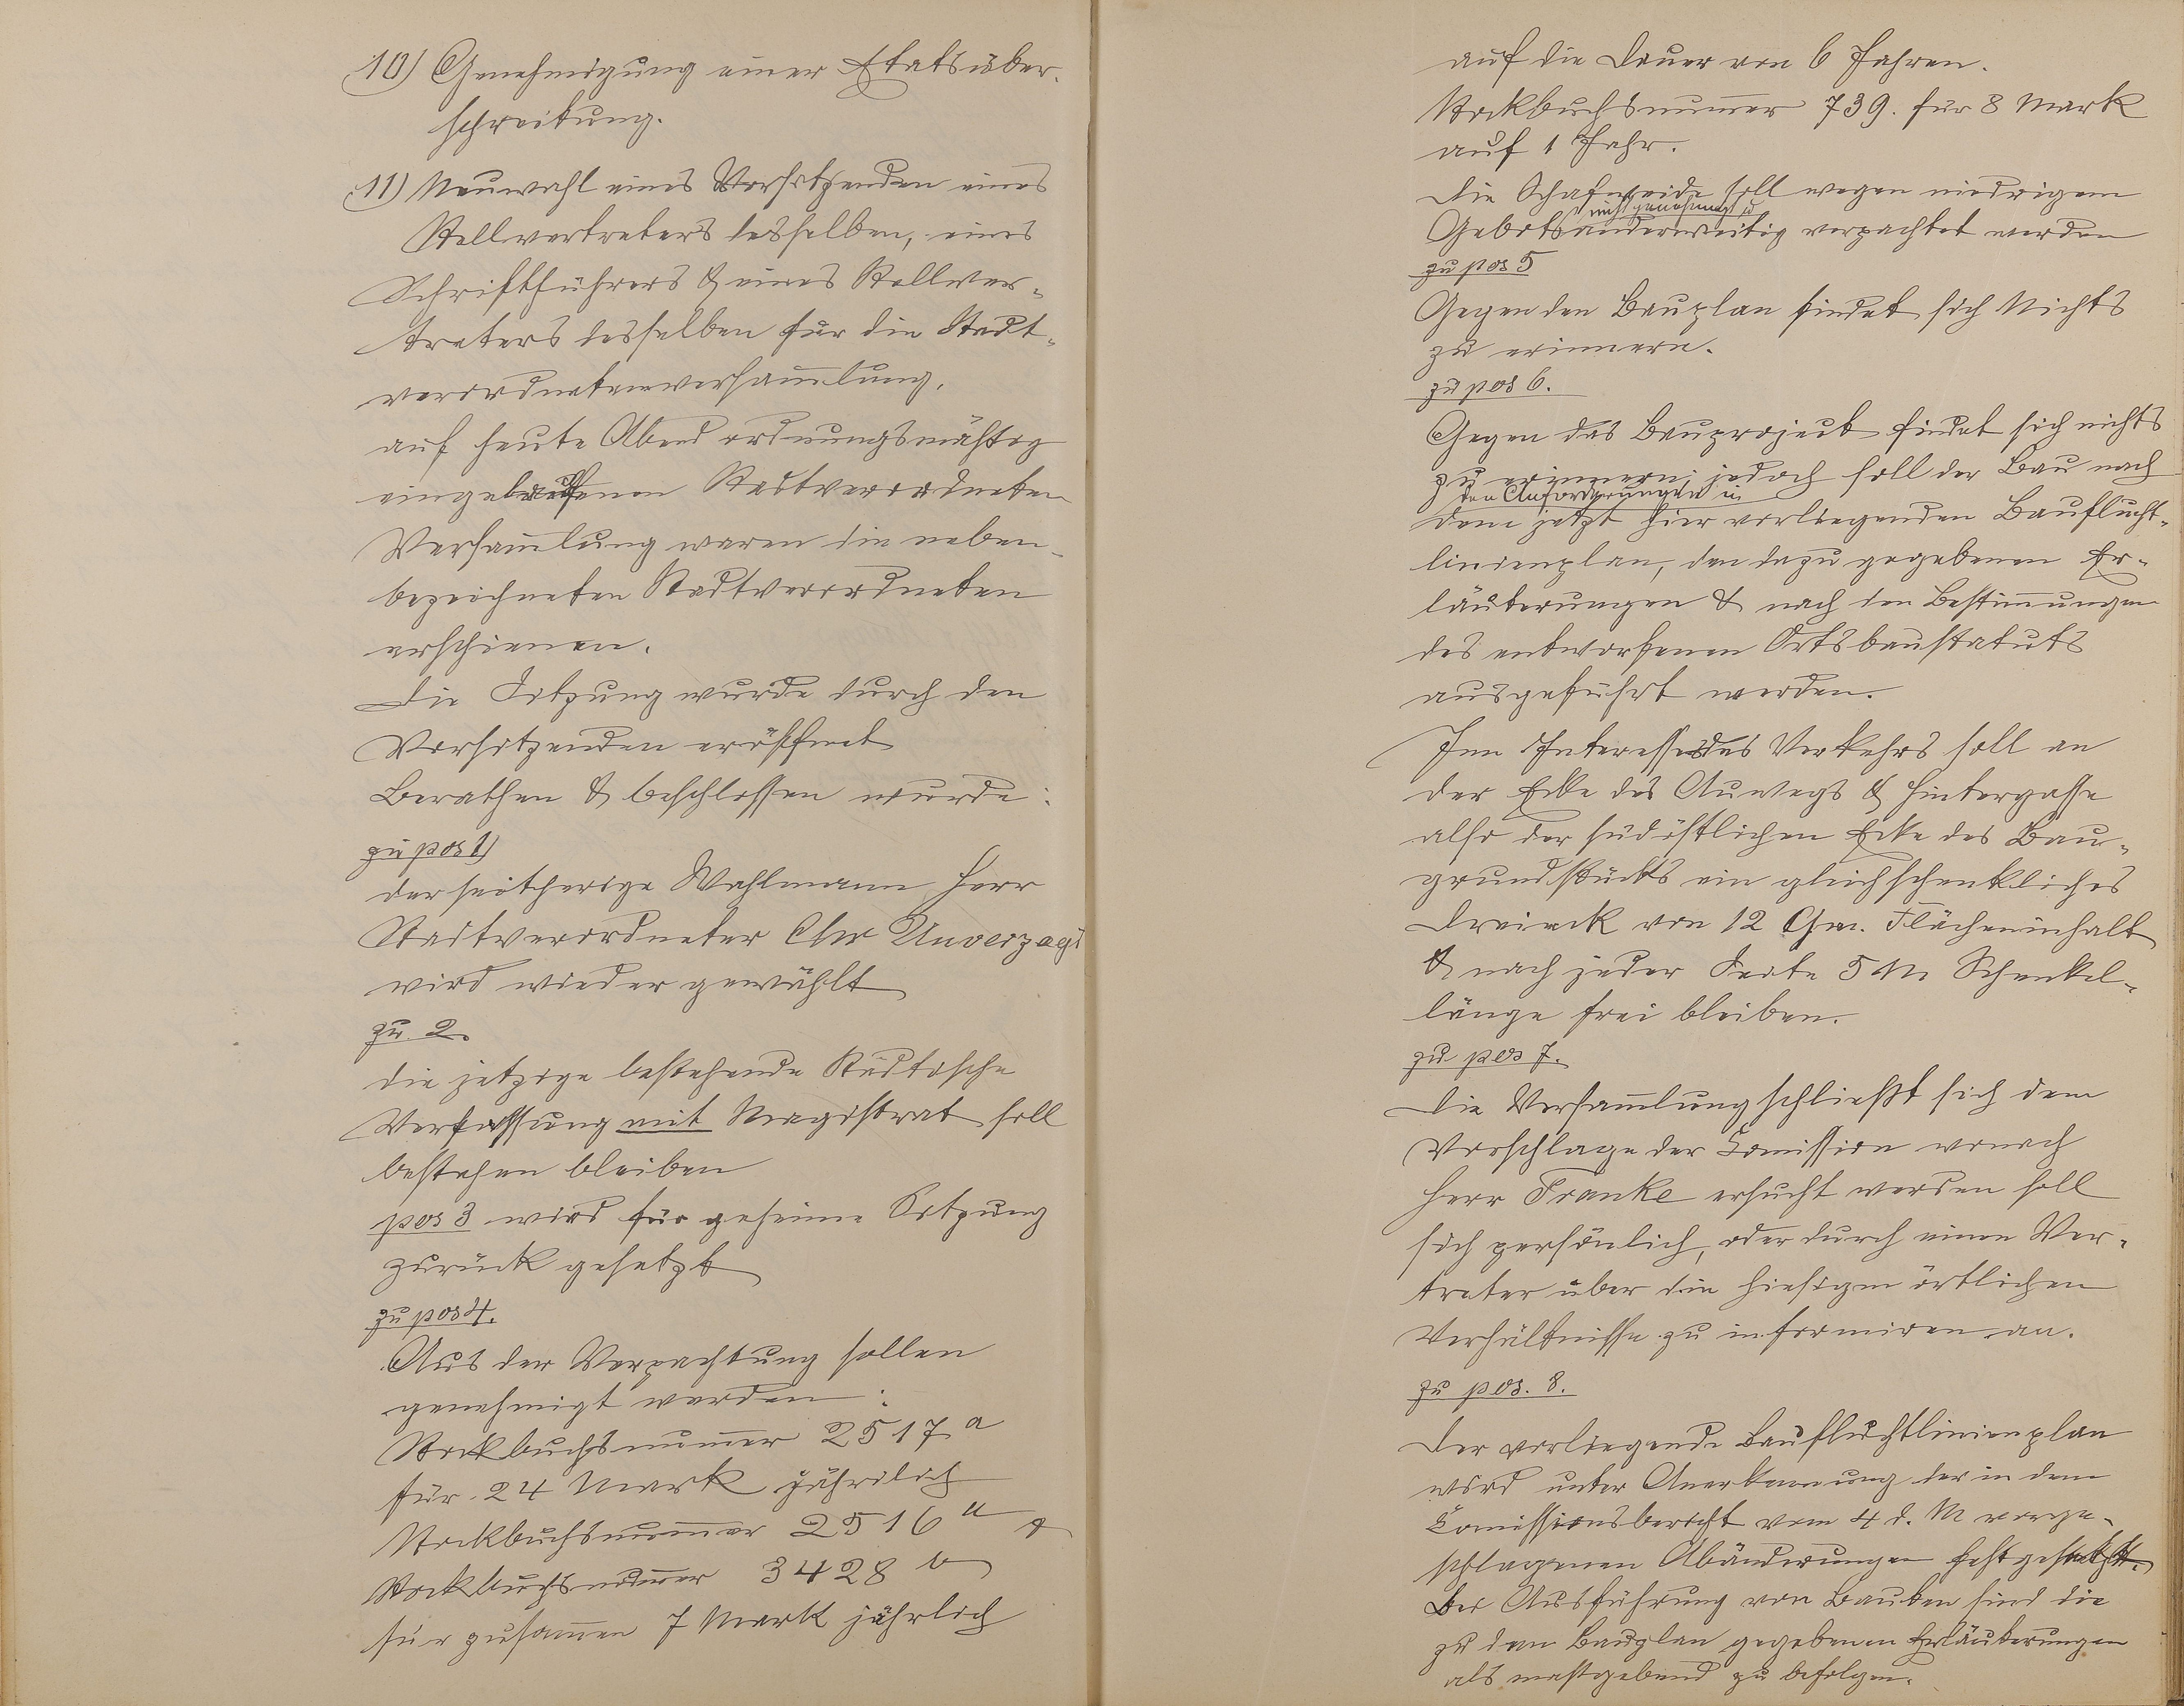 10) Genehmigung einer Etatsüber-
schreitung.
11) Neuwahl eines Vorsitzenden eines
Stellvertreters desselben, eines
Schriftführers & eines Stellver-
treters desselben für die Stadt-
verordnetenversam̅lung.
auf heute Abend ordnungsmäßig
eingeladenen Stadtverordneten
Versam̅lung waren die neben-
bezeichneten Stadtverordneten
erschienen.
Die Sitzung wurde durch den
Vorsitzenden eröffnet
Berathen & beschlossen wurde:
zu pos 1)
der seitherige Wahlmann Herr
Stadtverordneter Chr Unverzagt
wird wieder gewählt
zu 2.
die jetzige bestehende Städtische
Verfassung mit Magistrat soll
bestehen bleiben
pos 3 wird für geheime Sitzung
zurück gesetzt
zu pos 4.
Aus der Verpachtung sollen
genehmigt werden:
Stockbuchsnum̅er 2517 a
für 24 Mark jährlich
Stockbuchsnum̅er 2516 a &
Stockbuchsnum̅er 3428 b
für zusam̅en 7 Mark jährlich
auf die Dauer von 6 Jahren.
Stockbuchsnum̅er 739. für 8 Mark
auf 1 Jahr.
Die Schafweide soll wegen niedrigem
nicht genehmigt u
Gebots anderweitig verpachtet werden
zu pos 5
Gegen den Bauplan findet sich Nichts
zu erinnern.
zu pos 6.
Gegen das Bauproject findet sich nichts
zu erinnern; jedoch soll der Bau nach
den Anforderungen in
dem jetzt hier vorliegenden Bauflucht-
linienplan, den dazu gegebenen Er-
läuterungen & nach den Bestim̅ungen
des entworfenen Ortsbaustatuts
ausgeführt werden.
Im Interesse des Verkehrs soll an
der Ecke des Auwegs & Hintergasse
also der südöstlichen Ecke des Bau-
grundstücks ein gleichschenkliches
Dreieck von 12 Qm. Flächeninhalt
& nach jeder Seite 5 M Schenkel-
länge frei bleiben.
zu pos 7.
Die Versam̅lung schließt sich dem
Vorschlage der Com̅ission wonach
Herr Franke ersucht werden soll
sich persönlich, oder durch einen Ver-
treter über die hiesigen örtlichen
Verhältnisse zu informiren an.
zu pos. 8.
Der vorliegende Baufluchtlinienplan
wird unter Anerkennung der in dem
Com̅issionsbericht vom 4 d. M vorge-
schlagenen Abänderungen festgesetzt.
Bei Ausführung von Bauten sind die
zu dem Bauplan gegebenen Erläuterungen
als maßgebend zu befolgen.